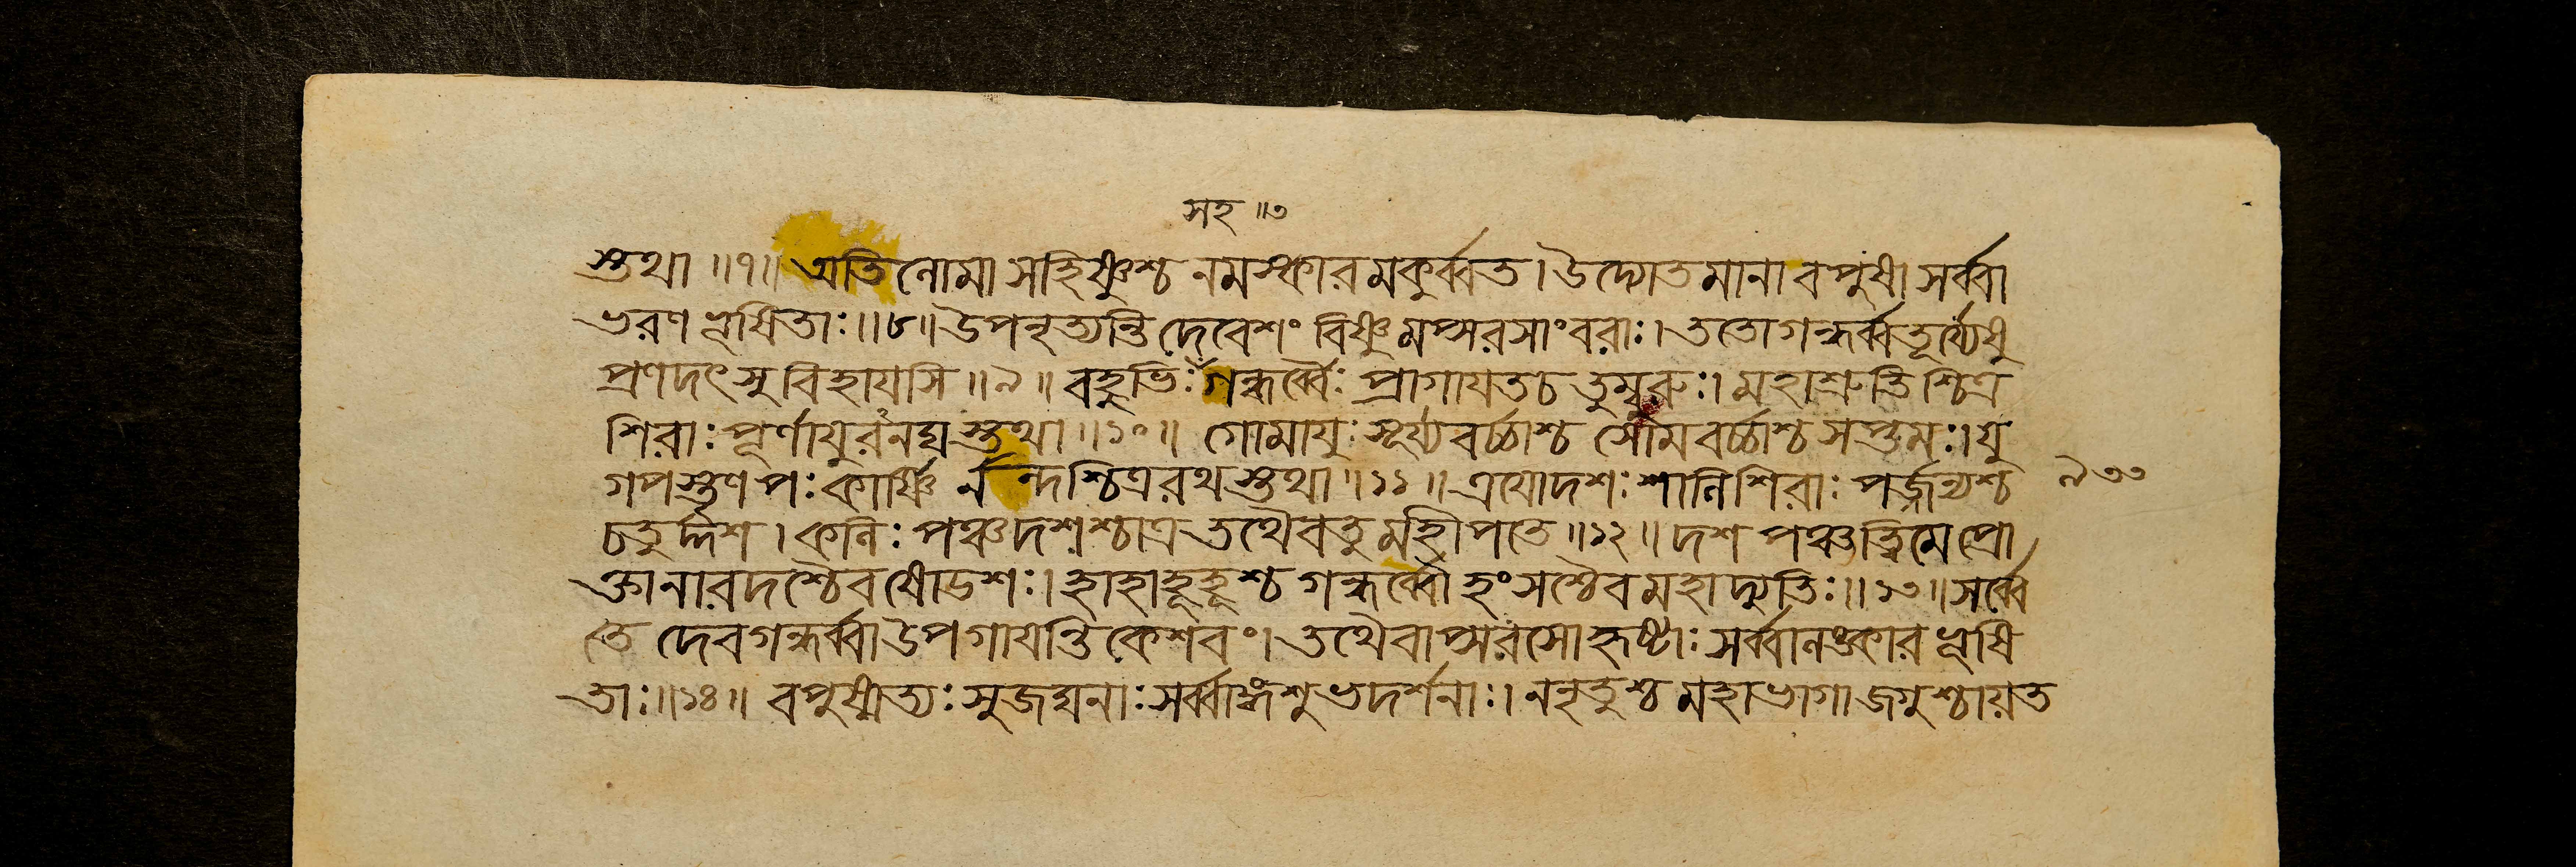 সহ ॥৩
স্তথা ॥৭॥ অতি নোমা সহিষ্ণুশ্চ নমস্কারমকুর্ব্বত । উদ্দ্যোতমানা বপুষা সর্ব্বা
ভরণ ভূষিতাঃ ॥৮॥ উপনৃত্যন্তি দেবেশং বিষ্ণুমপ্সরসাং বরাঃ । ততো গন্ধর্ব্বতূর্য্যেষু
প্রণদৎসু বিহায়সি ॥৯॥ বহুভিঃ গন্ধর্ব্বৈঃ প্রাগায়ত চ তুম্বুরুঃ । মহাশ্রুতি শ্চিত্র
শিরাঃ পূর্ণায়ুরনঘস্তথা ॥১০॥ গোমায়ুঃ সূর্য্যবর্চ্চাশ্চ সোমবর্চ্চাশ্চ সপ্তমঃ । যু
গপস্তৃণপঃ কার্ষ্ণি র্নন্দশ্চিত্ররথস্তথা ॥১১॥ ত্রয়োদশঃ শালিশিরাঃ পর্জ্জন্যশ্চ
৯৩৩
চতুর্দ্দশ । কলিঃ পঞ্চদশশ্চাত্র তথৈব তু মহীপতে ॥১২॥ দশ পঞ্চত্বিমে প্রো
ক্তা নারদশ্চৈব ষোডশঃ । হাহাহূহূশ্চ গন্ধর্ব্বৌ হংসশ্চৈব মহাদ্যুতিঃ ॥১৩॥ সর্ব্বে
তে দেবগন্ধর্ব্বা উপগায়ন্তি কেশবং । তথৈবাপ্সরসো হৃষ্টাঃ সর্ব্বালঙ্কার ভূষি
তাঃ ॥১৪॥ বপুষ্মত্যঃ সুজঘনাঃ সর্ব্বাঙ্গশুভদর্শনাঃ । ননৃতুশ্চ মহাভাগা জগুশ্চায়ত